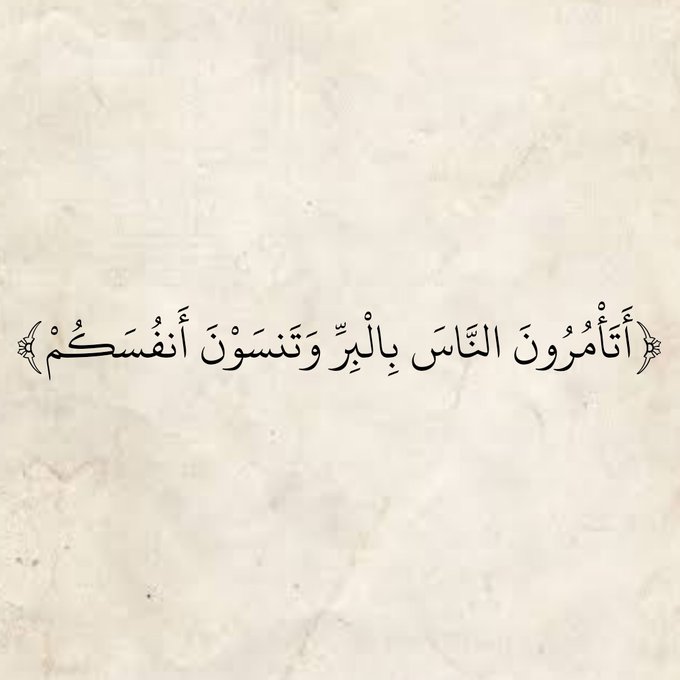 ﴿أَتَأْمُرُونَ النَّاسَ بِالْبِرِّ وَتَنسَوْنَ أَنفُسَكُمْ﴾